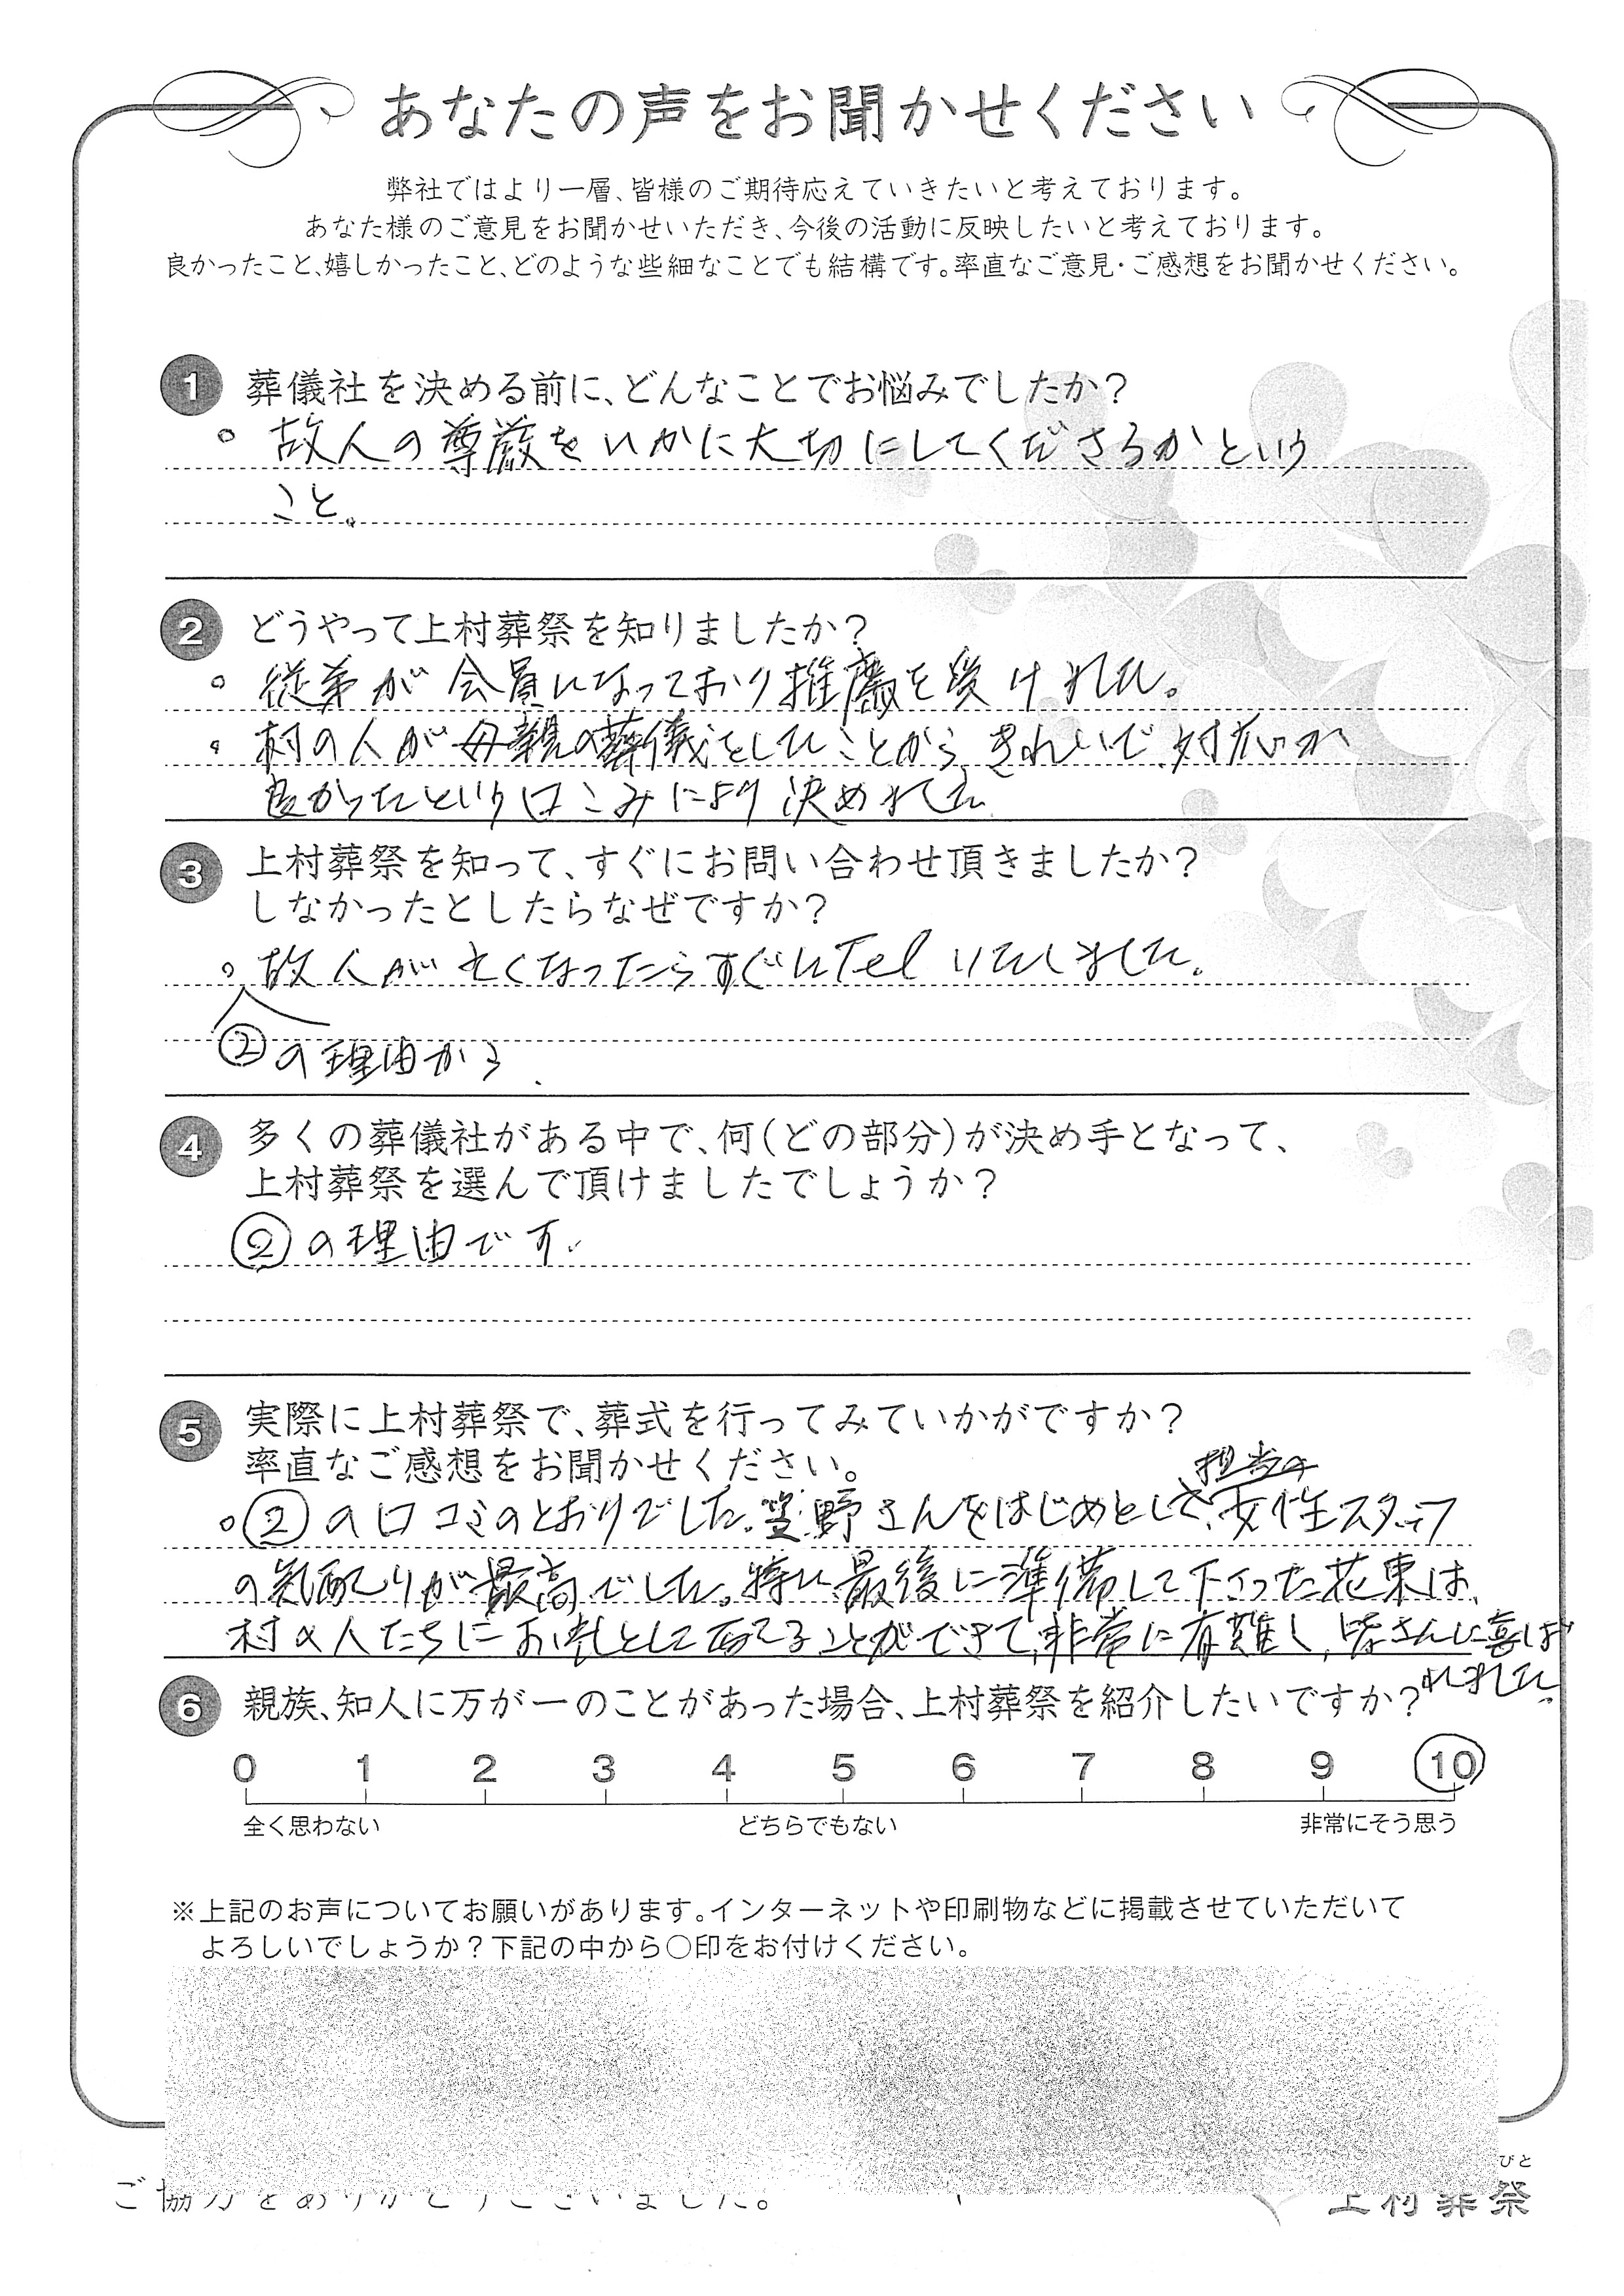 あなたの声をお聞かせください
弊社ではより一層、皆様のご期待応えていきたいと考えております。
あなた様のご意見をお聞かせいただき、今後の活動に反映したいと考えております。
良かったこと、嬉しかったこと、どのような些細なことでも結構です。率直なご意見・ご感想をお聞かせください。
1 葬儀社を決める前に、どんなことでお悩みでしたか？
。故人の尊厳をいかに大切にしてくださるかという
こと。
2 どうやって上村葬祭を知りましたか？
。従弟が会員になっており推薦を受けました。
。村の人が母親の葬儀をしたことから、きれいで、対応が
良かったという口こみにより決めました
3 上村葬祭を知って、すぐにお問い合わせ頂きましたか？
しなかったとしたらなぜですか？
。故人が亡くなったらすぐにTelいたしました。
②の理由から.
4 多くの葬儀社がある中で、何（どの部分）が決め手となって、
上村葬祭を選んで頂けましたでしょうか？
②の理由です.
5 実際に上村葬祭で、葬式を行ってみていかがですか？
率直なご感想をお聞かせください。
担当の
。②の口コミのとおりでした。野さんをはじめとして、女性スタッフ
の気配りが最高でした。特に最後に準備して下さった花束は、
村の人たちにお礼としてあてることができて、非常に有難く、皆さんに喜ば
れました。
6 親族、知人に万が一のことがあった場合、上村葬祭を紹介したいですか？
0 1 2 3 4 5 6 7 8 9 10
全く思わない どちらでもない 非常にそう思う
※上記のお声についてお願いがあります。インターネットや印刷物などに掲載させていただいて
よろしいでしょうか？下記の中から○印をお付けください。
びと
ご協力をありがとうございました。 上村葬祭